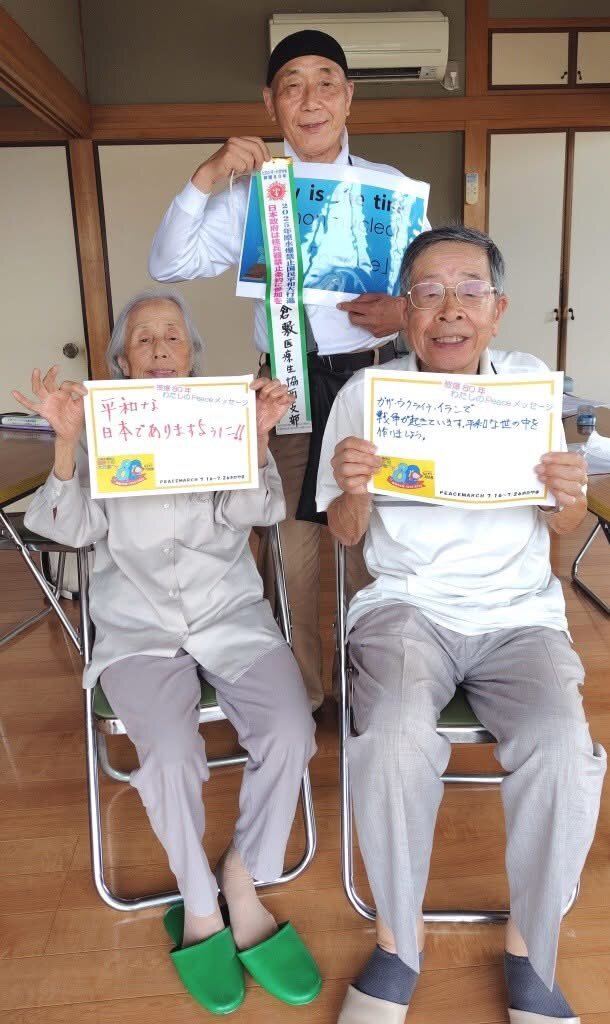 y is the time
2025年原水爆禁止国民平和大行進
日本政府は核兵器禁止条約に参加を
倉敷医療生協
被爆80年
わたしのPeaceメッセージ
平和な
日本でありますように!!
PEACEMARCH 7・16~7・26
被爆80年
わたしのPeaceメッセージ
ガザ・ウクライナ・イランで
戦争が起こっています。平和な世の中を
作りましょう。
PEACEMARCH 7・16~7・26